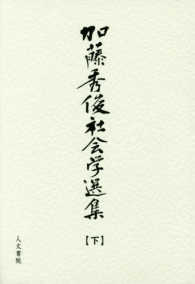 加藤秀俊社会学選集
【下】
人文書院